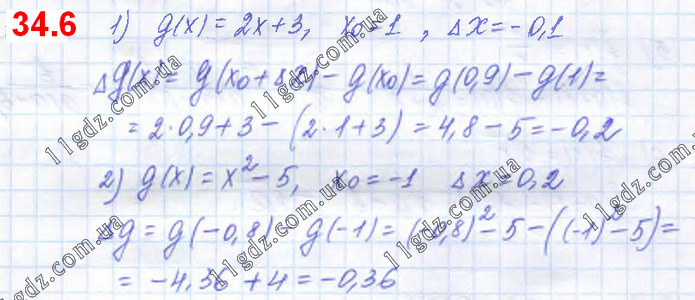 34.6
1) g(x) = 2x+3, x₀=1, Δx=-0,1
Δg(x)= g(x₀+Δx) - g(x₀) = g(0,9) - g(1) =
= 2·0,9+3 - (2·1+3) = 4,8-5 = -0,2
2) g(x) = x²-5, x₀=-1 Δx=0,2
Δg = g(-0,8) - g(-1) = (-0,8)²-5-((-1)²-5) =
= -4,36 +4 = -0,36
11gdz.com.ua
11gdz.com.ua
11gdz.com.ua
11gdz.com.ua
11gdz.com.ua
11gdz.com.ua